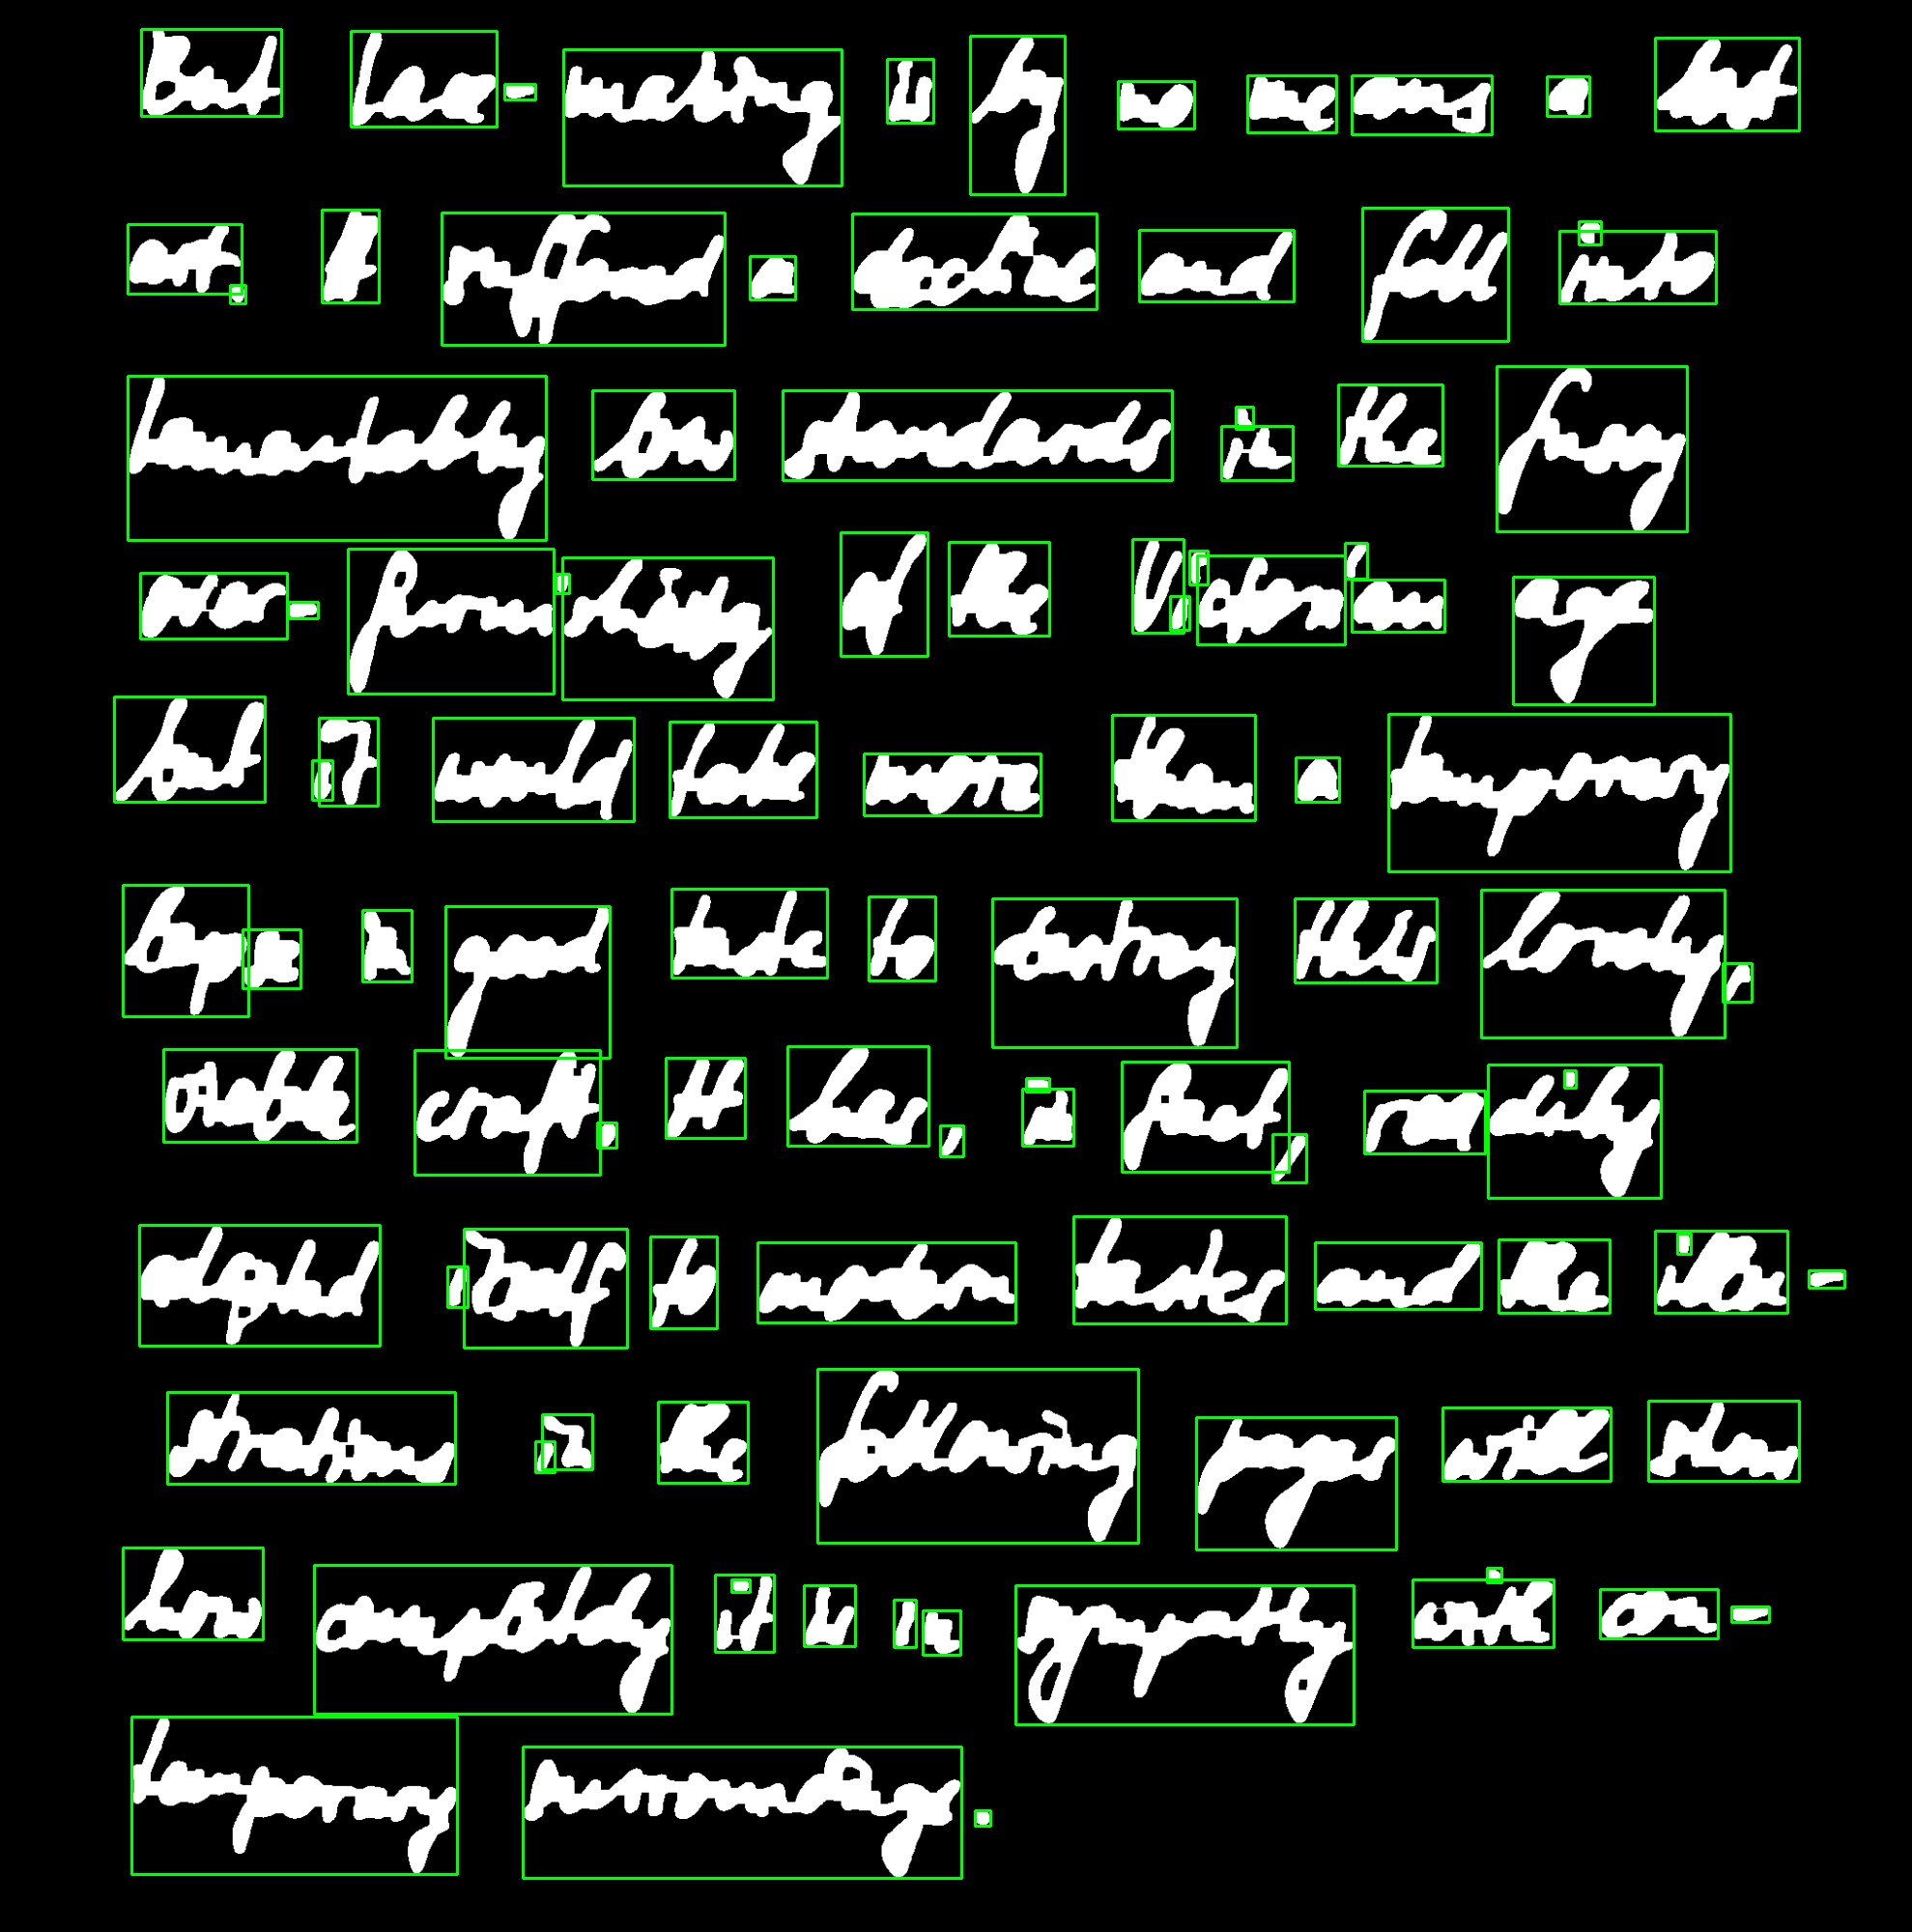 But lace-making is by no means a lost
art. It suffered a decline and fell into
lamentably low standards in the fussy
over-furnishing of the Victorian age
but it would take more than a temporary
lapse in good taste to destroy this lovely,
intricate craft. It has, in fact, readily
adapted itself to modern tastes and the illu-
strations in the following pages will show
how completely it is in sympathy with con-
temporary surroundings.